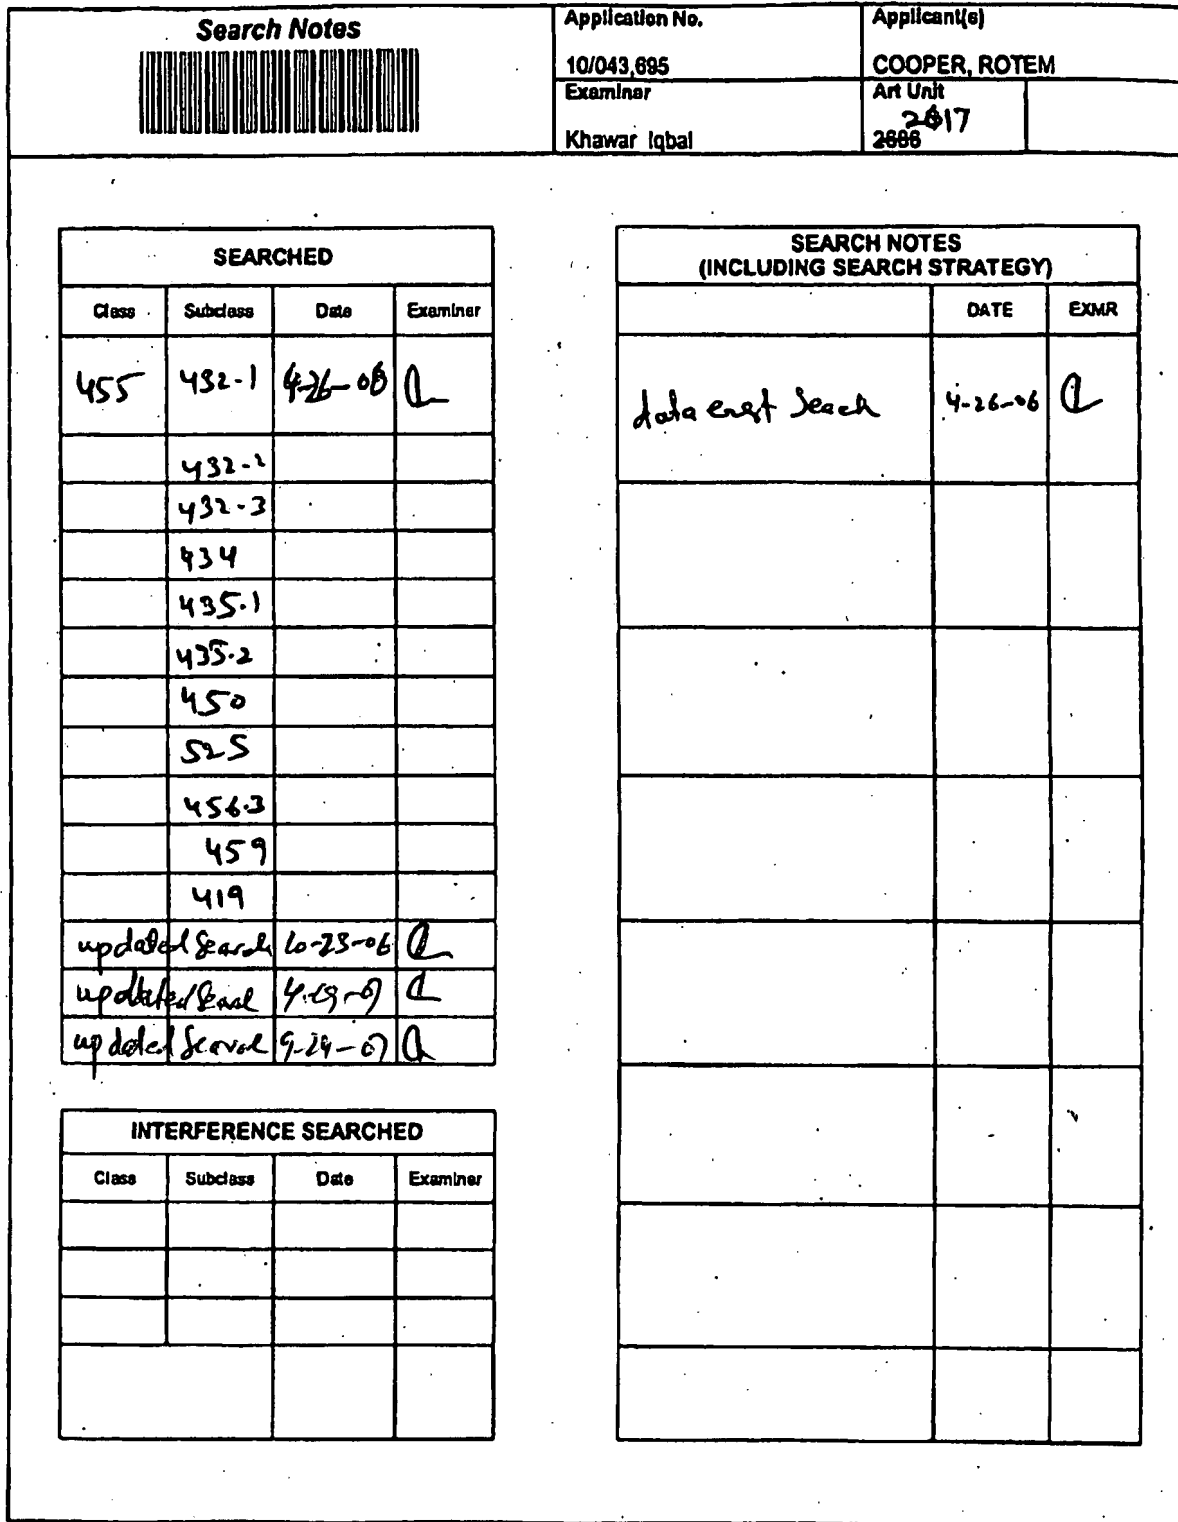 Search Notes
Application No.
10/043,695
Applicant(s)
COOPER, ROTEM
Examiner
Khawar Iqbal
Art Unit
2617
2686
SEARCHED
Class Subclass Date Examiner
455 432-1 4-26-06
432-2
432-3
434
435.1
435.2
450
525
456.3
459
419
updated Search 10-23-06
updated Search
updated Search 9-24-07
INTERFERENCE SEARCHED
Class Subclass Date Examiner
SEARCH NOTES
(INCLUDING SEARCH STRATEGY)
DATE EXMR
data Seach 4-26-06